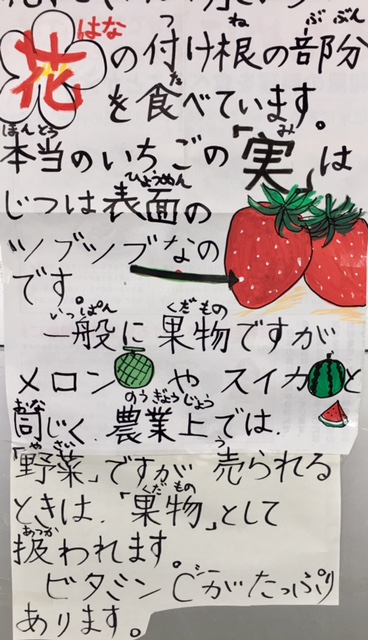 はな つ ね ぶぶん
花の付け根の部分
た
を食べています。
ほんとう み
本当のいちごの「実」は
ひょうめん
じつは表面の
ツブツブなの
です。
いっぱん くだもの
一般に果物ですが
メロンやスイカと
おな のうぎょうじょう
同じく、農業上では、
やさい う
「野菜」ですが売られる
くだもの
ときは、「果物」として
あつか
扱われます。
シー
ビタミンCがたっぷり
あります。